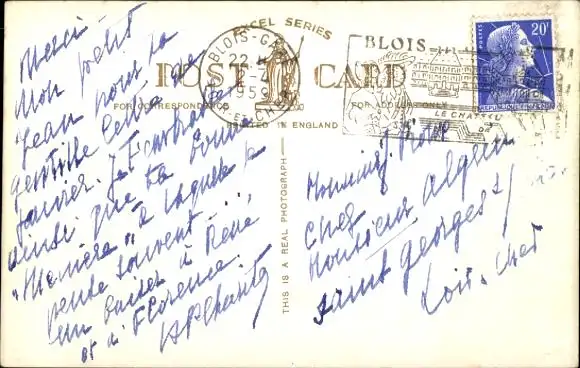 EXCEL SERIES
POST CARD
FOR CORRESPONDENCE
FOR ADDRESS ONLY
PRINTED IN ENGLAND
THIS IS A REAL PHOTOGRAPH
BLOIS-G
22
1959
BLOIS
LE CHATEAU
POSTES
20F
Merci
Mon petit
Jean pour ta
gentille lettre de
janvier. Je t'embrasse
ainsi que ta bonne
"Mémère" à laquelle je
pense souvent...
Un baiser à René
et à Florence.
Monsieur
chez
Monsieur
Saint Georges s/
Loir-Cher